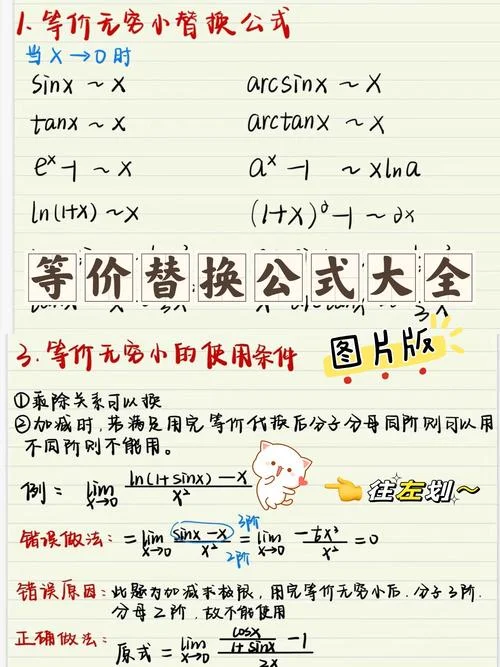 1. 等价无穷小替换公式
当 x→0 时
sinx ~ x    arcsinx ~ x
tanx ~ x    arctanx ~ x
e^x-1 ~ x    a^x-1 ~ xlna
ln(1+x) ~ x    (1+x)^∂-1 ~ ∂x
等价替换公式大全
图片版
3. 等价无穷小的使用条件
①乘除关系可以换
②加减时,若满足用完等价代换后分子分母同阶则可以用
不同阶则不能用。
例: lim x→0 (ln(1+sinx)-x)/x²
往左划~
错误做法: = lim x→0 (sinx-x)/x² 3阶 2阶 = lim x→0 (-1/6x³)/x² = 0
错误原因: 此题为加减求极限,用完等价无穷小后,分子3阶.
分母2阶,故不能使用
正确做法: 原式 = lim x→0 (cosx/(1+sinx) -1)/2x